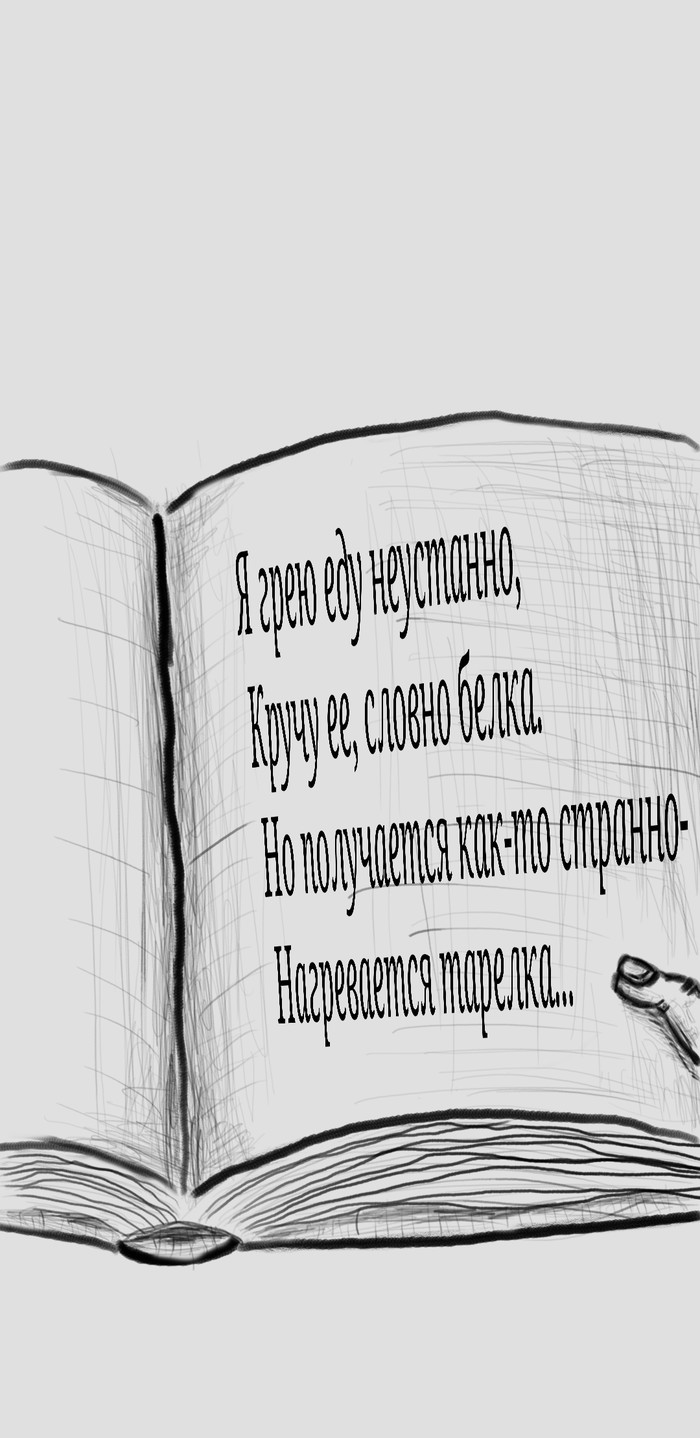 Я грею еду неустанно,
Кручу ее, словно белка.
Но получается как-то странно-
Нагревается тарелка...